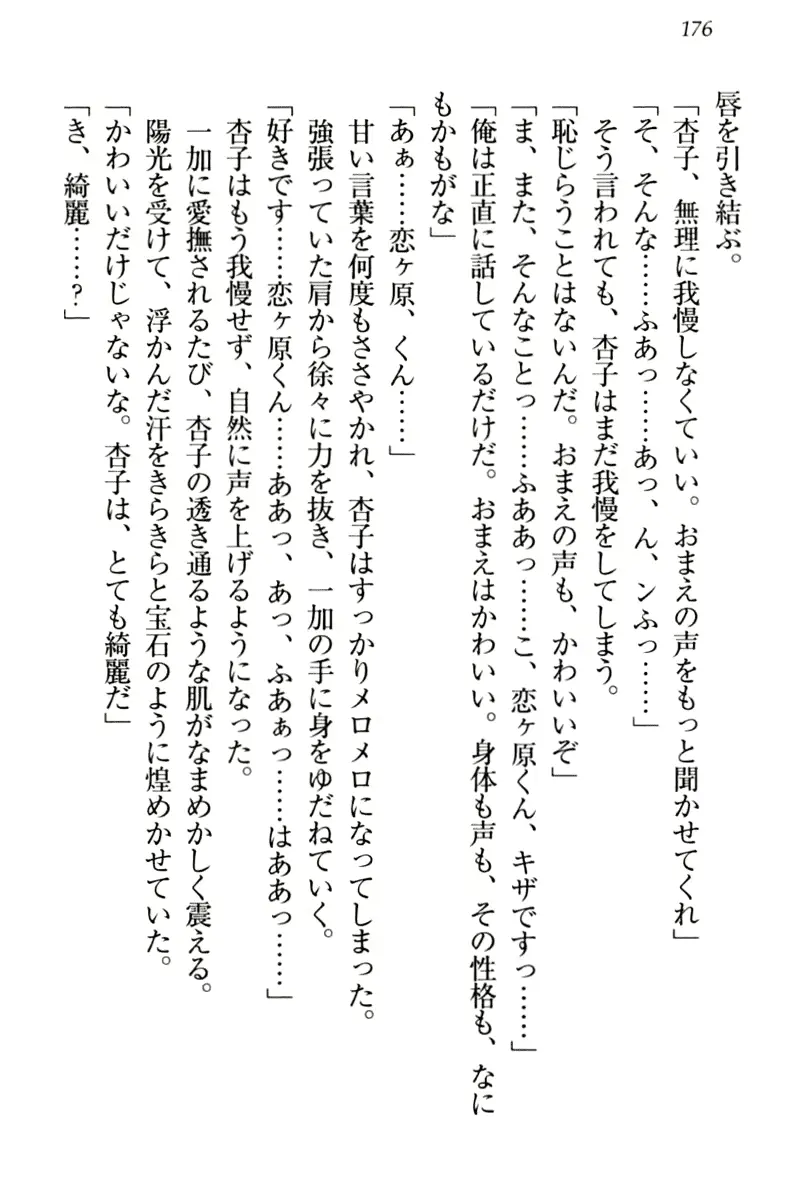 176
唇を引き結ぶ。
「杏子、無理に我慢しなくていい。おまえの声をもっと聞かせてくれ」
「そ、そんな……ふあっ……あっ、ん、ンふっ……」
そう言われても、杏子はまだ我慢をしてしまう。
「恥じらうことはないんだ。おまえの声も、かわいいぞ」
「ま、また、そんなことっ……ふああっ……こ、恋ヶ原くん、キザですっ……」
「俺は正直に話しているだけだ。おまえはかわいい。身体も声も、その性格も、なに
もかもがな」
「あぁ……恋ヶ原、くん……」
甘い言葉を何度もささやかれ、杏子はすっかりメロメロになってしまった。
強張っていた肩から徐々に力を抜き、一加の手に身をゆだねていく。
「好きです……恋ヶ原くん……ああっ、あっ、ふあぁっ……はああっ……」
杏子はもう我慢せず、自然に声を上げるようになった。
一加に愛撫されるたび、杏子の透き通るような肌がなまめかしく震える。
陽光を受けて、浮かんだ汗をきらきらと宝石のように煌めかせていた。
「かわいいだけじゃないな。杏子は、とても綺麗だ」
「き、綺麗……？」